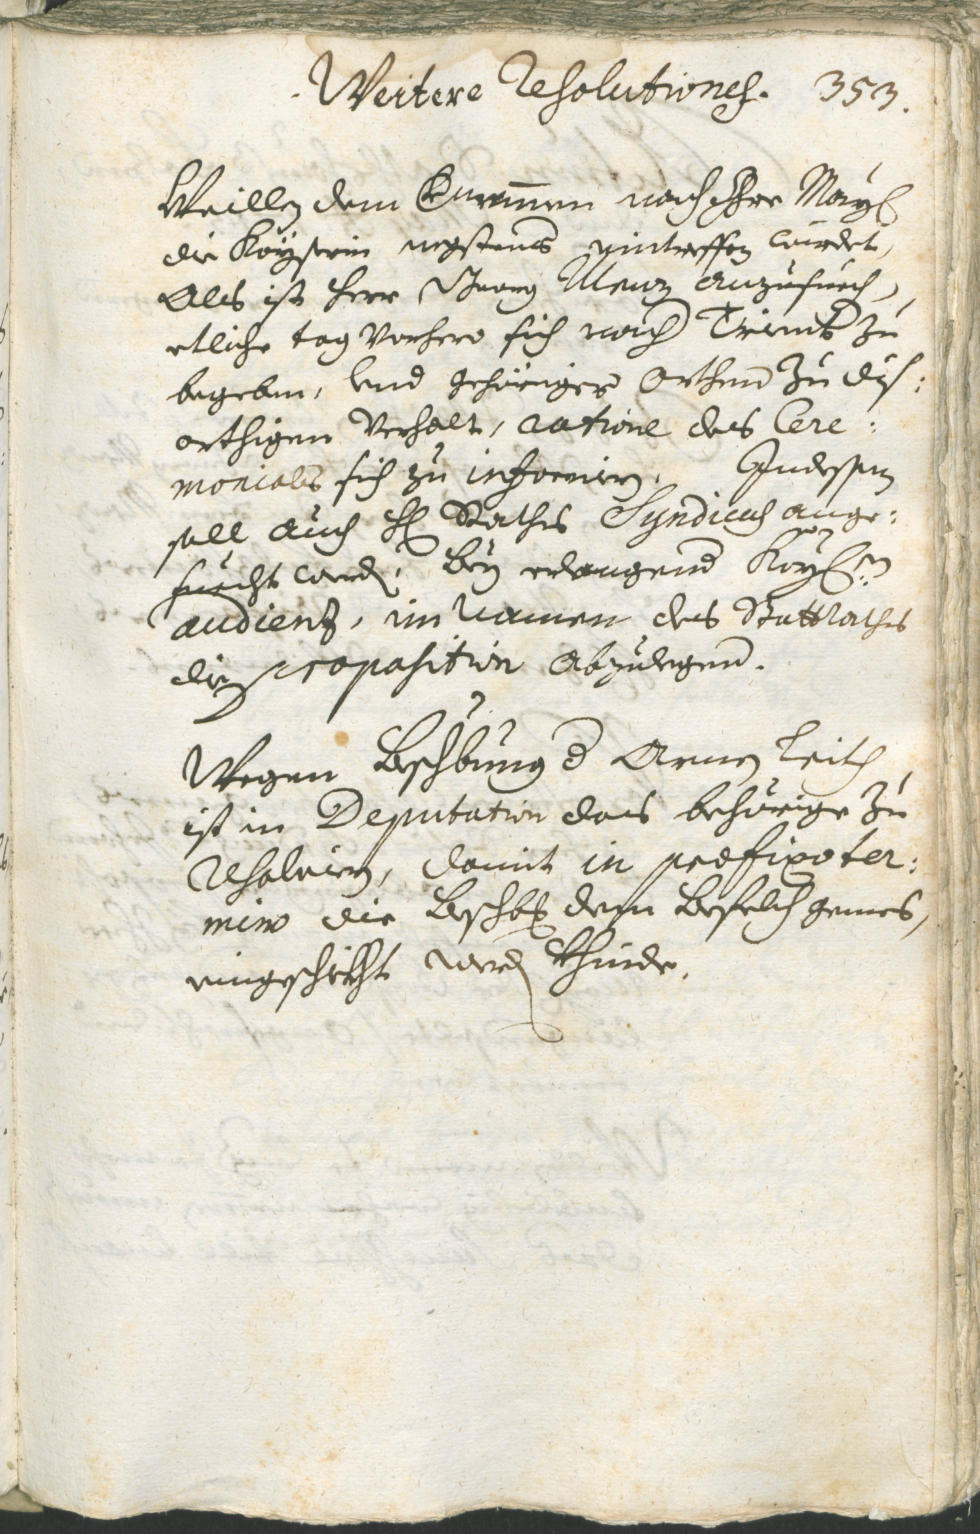 Weitere Resolutiones. 353.
Weillen dem Vernemmen nach Ihre Mayt
die Kayserin negstens eintreffen wirdet,
Als ist Herr Georg Menz anzusuech,
etliche tag vorhero sich nach Trient zu
begeben, und gehörigen orthen zu diß:
orthigen Verhalt, ratione des Cere:
monialis sich zu informiern. Indessen
soll auch H: Rathes Syndicus ange:
suecht werden, bey erlangend Kays:en
audienz, im Namen des Stattrathes
die proposition abzulegen.
Wegen Beschbung d Armen leith
ist in Deputation das behörige zu
resolviern, damit in praefixo ter:
mino die Beschbg dem Befelch gemes,
eingeschikht werden khinde.